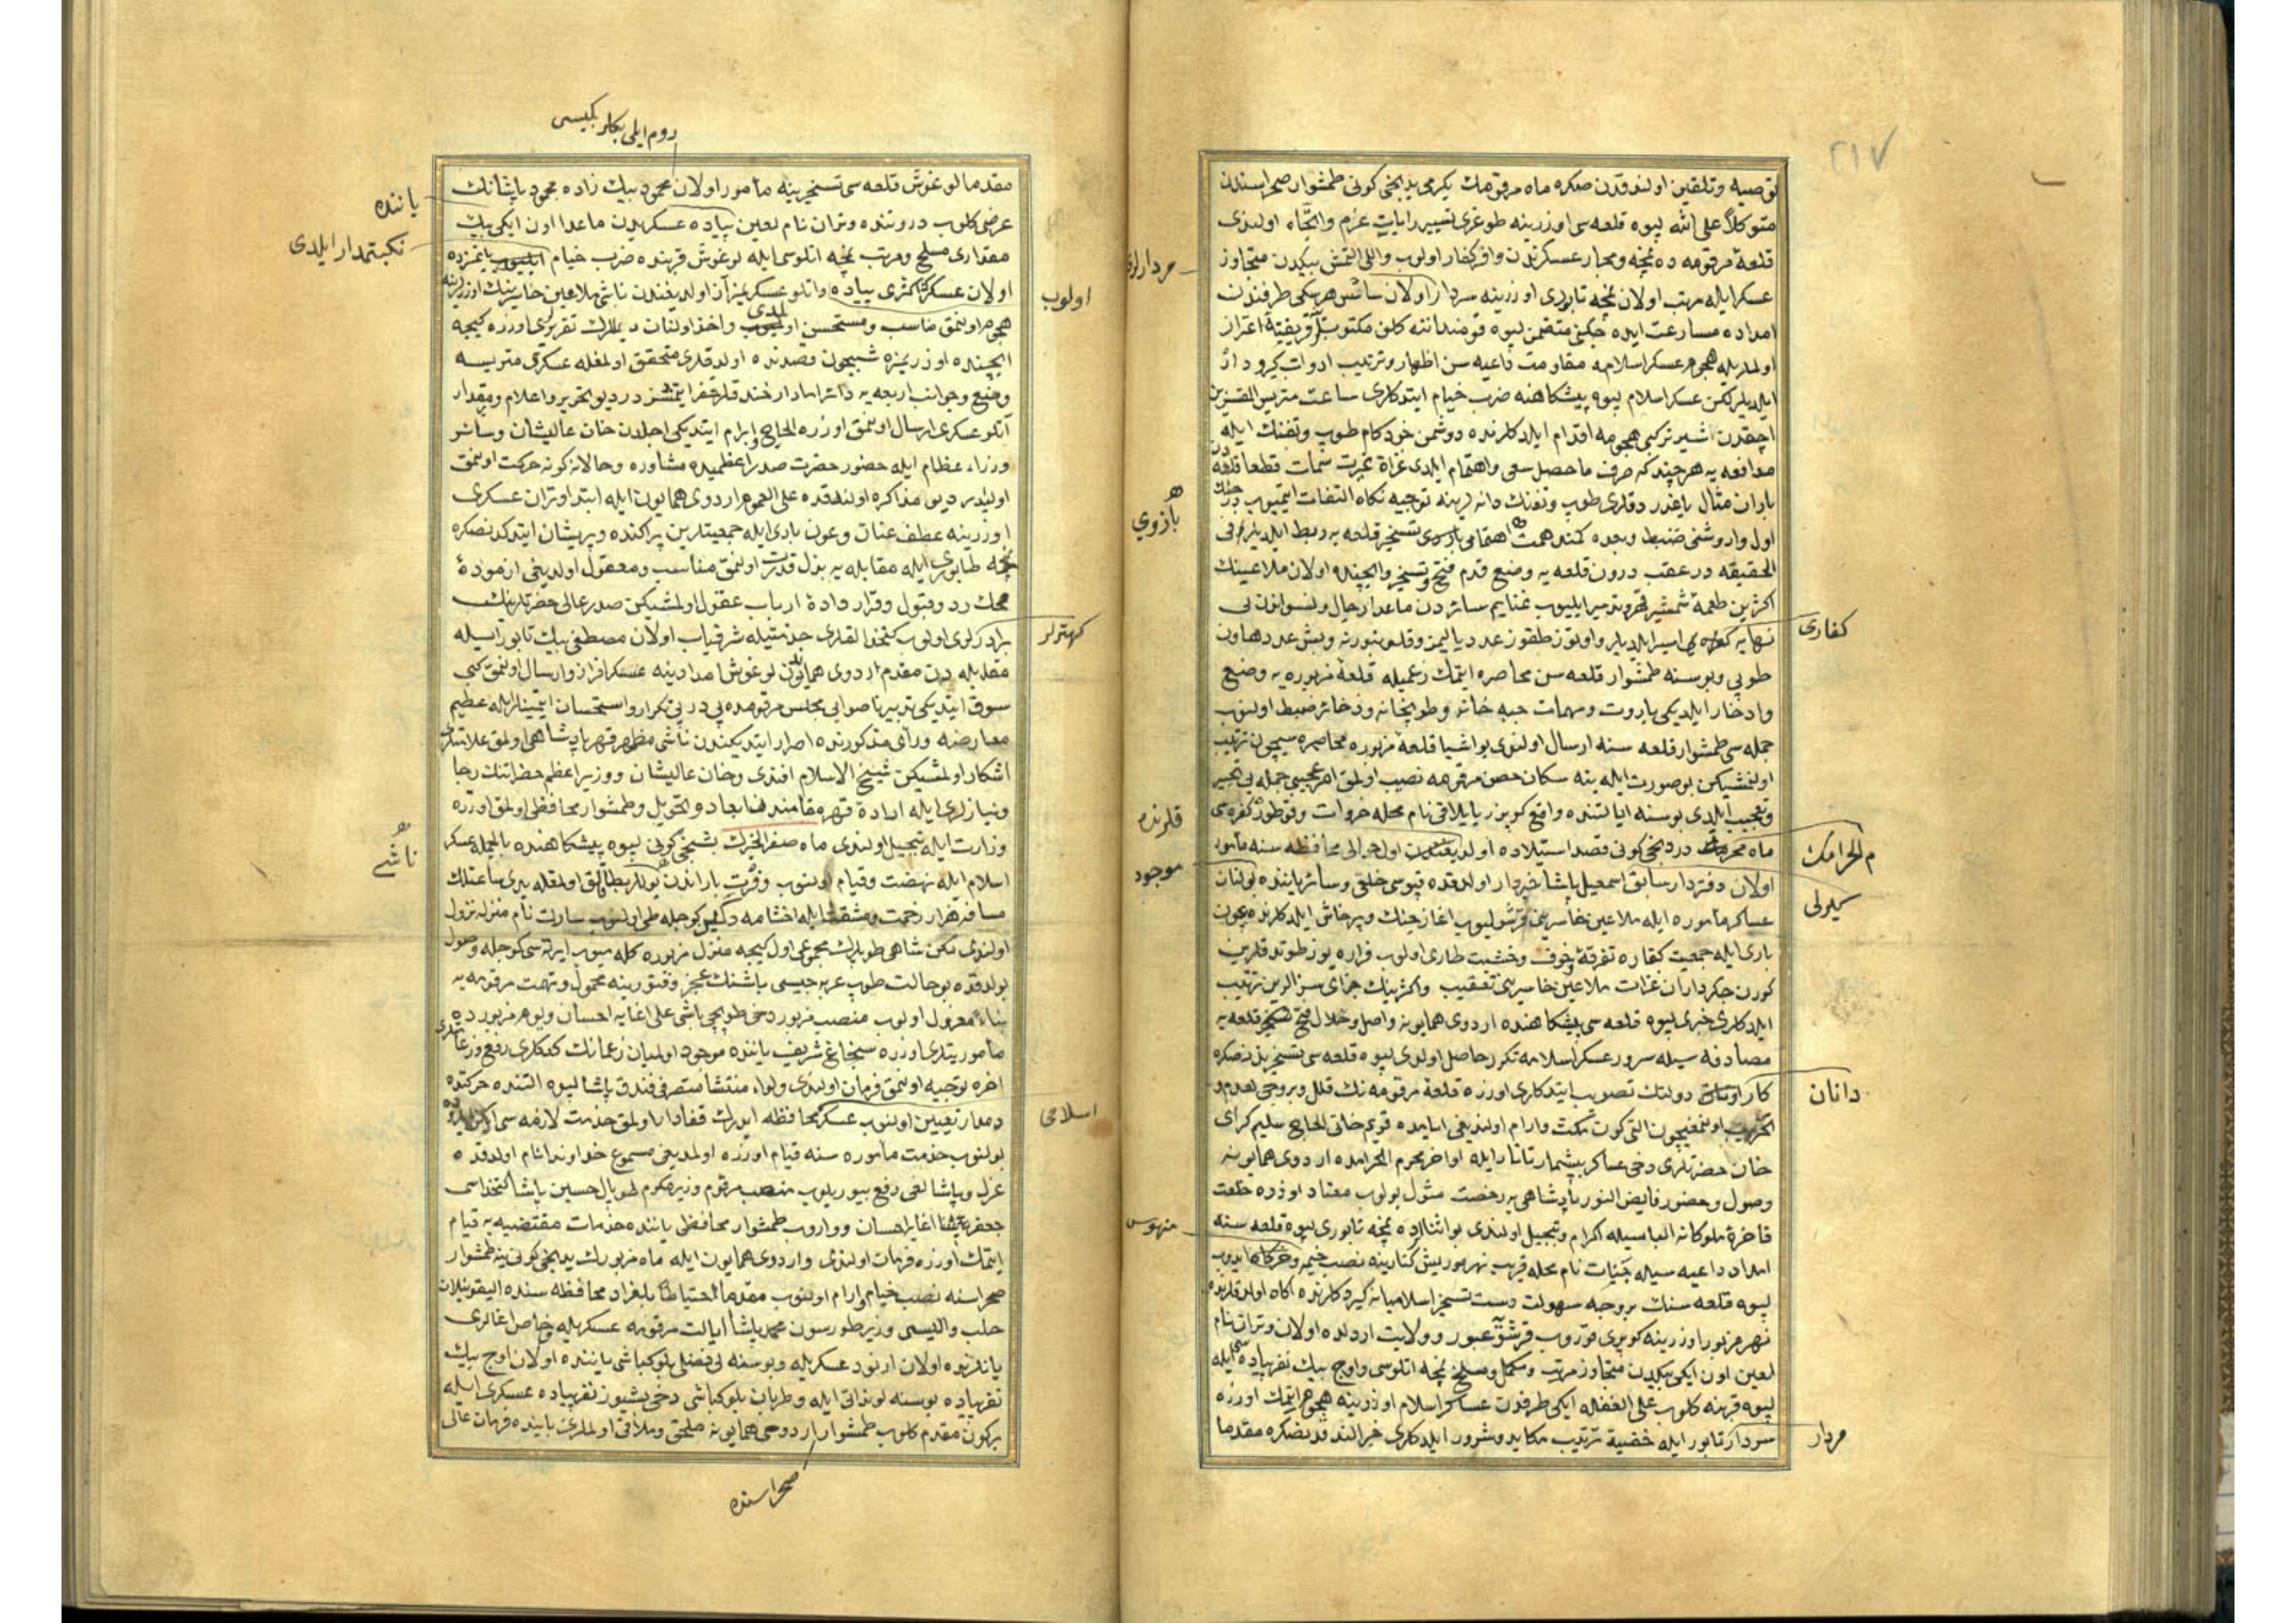 ٢١٧
توصیه و تلقین اولندقدن صکره ماه مرقومك یكرمی یدنجی كونی طمشوار صحراسندن
متوكلاً علی الله لیوه قلعه سی اوزرینه طوغری تسییر رایات عزم واتجاه اولندی
قلعهٔ مرقومه ده نمچه ومجار عسكرندن وافر كفار اولوب واللی التمش بیكدن متجاوز
عسكر ایله مرتب اولان نمچه تابوری اوزرینه سردار اولان ساقس هرسكی طرفندن
امداده مسارعت ایده جكنی متضمن لیوه قومنداننه كلن مكتوب
اولملریله هجوم عسكر اسلامه مقاومت داعیه سن اظهار وترتیب ادوات كیر و دار
ایلدیلر لكن عسكر اسلام لیوه پیشكاهنه ضرب خیام ایتدكلری ساعت متریس
آچقدن شیر تركی هجومه اقدام ایلدكلرنده دوشمن خودكام طوپ وتفنك ایله
مدافعه یه هر چند كه صرف ما حصل سعی واهتمام ایلدی غزاة نصرت سمات قطعا قلعه دن
باران مثال یاغدردقلری طوپ وتفنك دانه لرینه توجیه نكاه التفات ایتمیوب
اول واروشنی ضبط وبعده كمند همت اهتمامی تسخیر قلعه یه ربط ایلدیلر فی
الحقیقه در عقب درون قلعه یه وضع قدم فتح وتسخیر وایچنده اولان ملاعینك
اكثرین طعمهٔ شمشیر قهر وتدمیر ایلیوب غنایم سائره دن ماعدا رجال ونسواندن بی
نهایه اسیر ایلدیلر واوتوز طقوز عدد بالیمز وقلعه وبش عدد هاون
طوپی وبو سنه طمشوار قلعه سن محاصره ایتمك زعمیله قلعهٔ مزبوره یه وضع
وادخار ایلدیكی باروت ومهمات جبه خانه وطوپخانه وذخائر ضبط اولنوب
جمله سی طمشوار قلعه سنه ارسال اولندی بو اشیا قلعهٔ مزبوره محاصره سیچون ترتیب
اولنمشیكن بو صورت ایله ینه سكان حصن مرقومه نصیب اولمق امر عجیبی جمله یی تحییر
وتعجیب ایلدی بوسنه ایالتنده واقع نام محله خروات كفره سی
ماه محرم دردنجی كونی قصد استیلاده اول حوالی محافظه سنه مأمور
اولان دفتردار سابق اسمعیل پاشا خبردار اولدقده قپوسی خلقی وسائر یاننده بولنان
عساكر مأموره ایله ملاعین خاسرینه قرشولیوب آغاز جنك وپرخاش ایلدكلرنده بعون
باری ایله جمعیت كفاره تفرقهٔ خوف وخشیت طاری اولوب فراره یوز طوتدقلرین
كورن جكرداران غزات ملاعین خاسرینی تعقیب واكثرینك جزای سزالرین ترتیب
ایلدكلری خبری لیوه قلعه سی پیشكاهنده اردوی همایونه واصل وخلال فتح تسخیر قلعه یه
مصادفه سیله سرور عسكر اسلامه تكرر حاصل اولدی لیوه قلعه سی تسخیرندنصكره
كار دولتك تصویب ایتدكلری اوزره قلعهٔ مرقومه نك قلل وبروجی هدم و
اولنمغیچون التی كون مكث وارام اولندیغی اثناده قریم خانی الحاج سلیم كرای
خان حضرتلری دخی عساكر بیشمار تاتار ایله اواخر محرم الحرامده اردوی همایونه
وصول وحضور فایض النور پادشاهی یه رخصت مثول بولوب معتاد اوزره خلعت
فاخرهٔ ملوكانه الباسیله اكرام وتبجیل اولندی بو اثنالرده نمچه تابوری لیوه قلعه سنه
امداد داعیه سیله جنیات نام محله قریب نهر موریش كنارینه نصب خیمه وخركاه ایدوب
لیوه قلعه سنك بروجه سهولت دست تسخیر اسلامیانه كیردكلرنده آكاه اولدقلرنده
نهر مزبور اوزرینه كوپری قوروب قرشویه عبور وولایت اردلده اولان وتران نام
لعین اون ایكی بیكدن متجاوز مرتب ومكمل ومسلح نمچه اتلوسی واوچ بیك نفر پیاده سی ایله
لیوه قربنه كلوب علی الغفله ایكی طرفدن عساكر اسلام اوزرینه هجوم ایتمك اوزره
سردار تابور ایله خفیة ترتیب مكاید وشرور ایلدكلری خبر الندقدنصكره مقدما
مردارلری
بازوی
قلرنده
موجود
منهوس
كفاری
م الحرامك
دانان
مردار
روم ایلی بكلر بكیسی
مقدما لوغوش قلعه سی تسخیرینه مأمور اولان محمود بیك زاده محمود پاشانك
عرضی كلوب دروننده وتران نام لعین پیاده عسكریدن ماعدا اون ایكی بیك
مقداری مسلح ومرتب نمچه اتلوسی ایله لوغوش قربنده ضرب خیام
اولان عسكرك اكثری پیاده واتلو عسكریمز آز اولدیغندن ناشی ملاعین خاسرینك اوزرینه
هجوم اولنمق مناسب ومستحسن واخذ اولنان دیللرك تقریری اوزره كیجه
ایچنده اوزریمزه شبیخون قصدنده اولدقلری متحقق اولمغله عسكری متریسه
وضع وجوانب اربعه یه دائرا مادار خندقلر حفر ایتمشزدر دیو تحریر واعلام ومقدار
آتلو عسكری ارسال اولنمق اوزره الحاح وابرام ایتدیكی اجلدن خان عالیشان وسائر
وزراء عظام ایله حضور حضرت صدر اعظمیده مشاوره وحالا نه كونه حركت اولنمق
اولیدر دیو مذاكره اولندقده علی العموم اردوی همایون ایله ابتدا وتران عسكری
اوزرینه عطف عنان وعون باری ایله جمعیتلرین پراكنده وپریشان ایتدكدنصكره
نمچه طابوری ایله مقابله یه بذل قدرت اولنمق مناسب ومعقول اولدیغی ازمودهٔ
محك رد وقبول وقرار دادهٔ ارباب عقول اولمشیكن صدر عالی حضرتلرینك
برادرلری اولوب كتخدالقلری خدمتیله شرفیاب اولان مصطفی بیك تابور ایله
مقابله دن مقدم اردوی همایوندن لوغوش امدادینه عسكر افراز وارسال اولنمق كبی
سوق ایتدیكی تدبیر ناصوابی مجلس مرقومده پی در پی تكرار واستحسان ایتمینلر ایله عظیم
معارضه ورأی مذكورنده اصرار ایتدیكندن ناشی مظهر قهر پادشاهی اولمق علامتلری
آشكار اولمشیكن شیخ الاسلام افندی وخان عالیشان ووزیر اعظم حضراتنك رجا
ونیازلری ایله ارادهٔ قهره مقامندن ابعاد وتحویل وطمشوار محافظی اولمق اوزره
وزارت ایله تبجیل اولندی ماه صفر الخیرك بشنجی كونی لیوه پیشكاهنده بالجمله عسكر
اسلام ایله نهضت وقیام اولنوب وفرت باراندن یوللر بطاقلق اولمغله بری ساعتلك
مسافه هزار زحمت ومشقت ایله اخشامه دكین كوجله طی اولنوب سارت نام منزله نزول
اولندی لكن شاهی طوپلرك مجموعی اول كیجه منزل مزبوره كله میوب ایرتسی كوجله وصول
بولدقده بو حالت طوپ عربه جیسی باشنك عجز وفتورینه محمول وتهمت مرقومه یه
بناء معزول اولوب منصب مزبور دخی طوپچی باشی علی اغایه احسان وبو سفر مزبورده
مأموریتلری اوزره سنجاغ شریف یاننده موجود اولمیان زعمانك كدكلری رفع وزعامتلری
آخره توجیه اولنمق فرمان اولندی ولواء منتشا متصرفی فندق پاشا لیوه التنده حركتده
دمدار تعیین اولنوب عسكر محافظه ایدرك قفادار اولمق خدمت لازمه سی ایكن
بولنوب خدمت مأموره سنه قیام اوزره اولمدیغی مسموع خداوند انام اولدقده
عزل وپاشالغی رفع بیوریلوب منصب مرقوم وزیر مكرم طوپال حسین پاشا كتخداسی
جعفر اغایه احسان وواروب طمشوار محافظی یاننده خدمات مقتضیه یه قیام
ایتمك اوزره فرمان اولندی واردوی همایون ایله ماه مزبورك یدنجی كونی ینه طمشوار
صحراسنه نصب خیام وآرام اولنوب مقدما احتیاطا بلغراد محافظه سنده الیقونیلان
حلب والیسی وزیر طورسون محمد پاشا ایالت مرقومه عسكریله وخاص اغالری
یانلرنده اولان ارنود عسكریله وبوسنه لی فضلی بلوكباشی یاننده اولان اوچ بیك
نفر پیاده بوسنه لوندانی ایله وطربان بلوكباشی دخی بشیوز نفر پیاده عسكری ایله
بركون مقدم كلوب طمشوار اردوی همایونه ملحق وملاقی اولملری بابنده فرمان عالی
یاننده
نكبتمدار ایلدی
اولوب
كهترلر
ناشی
اسلامی
صحراسنده